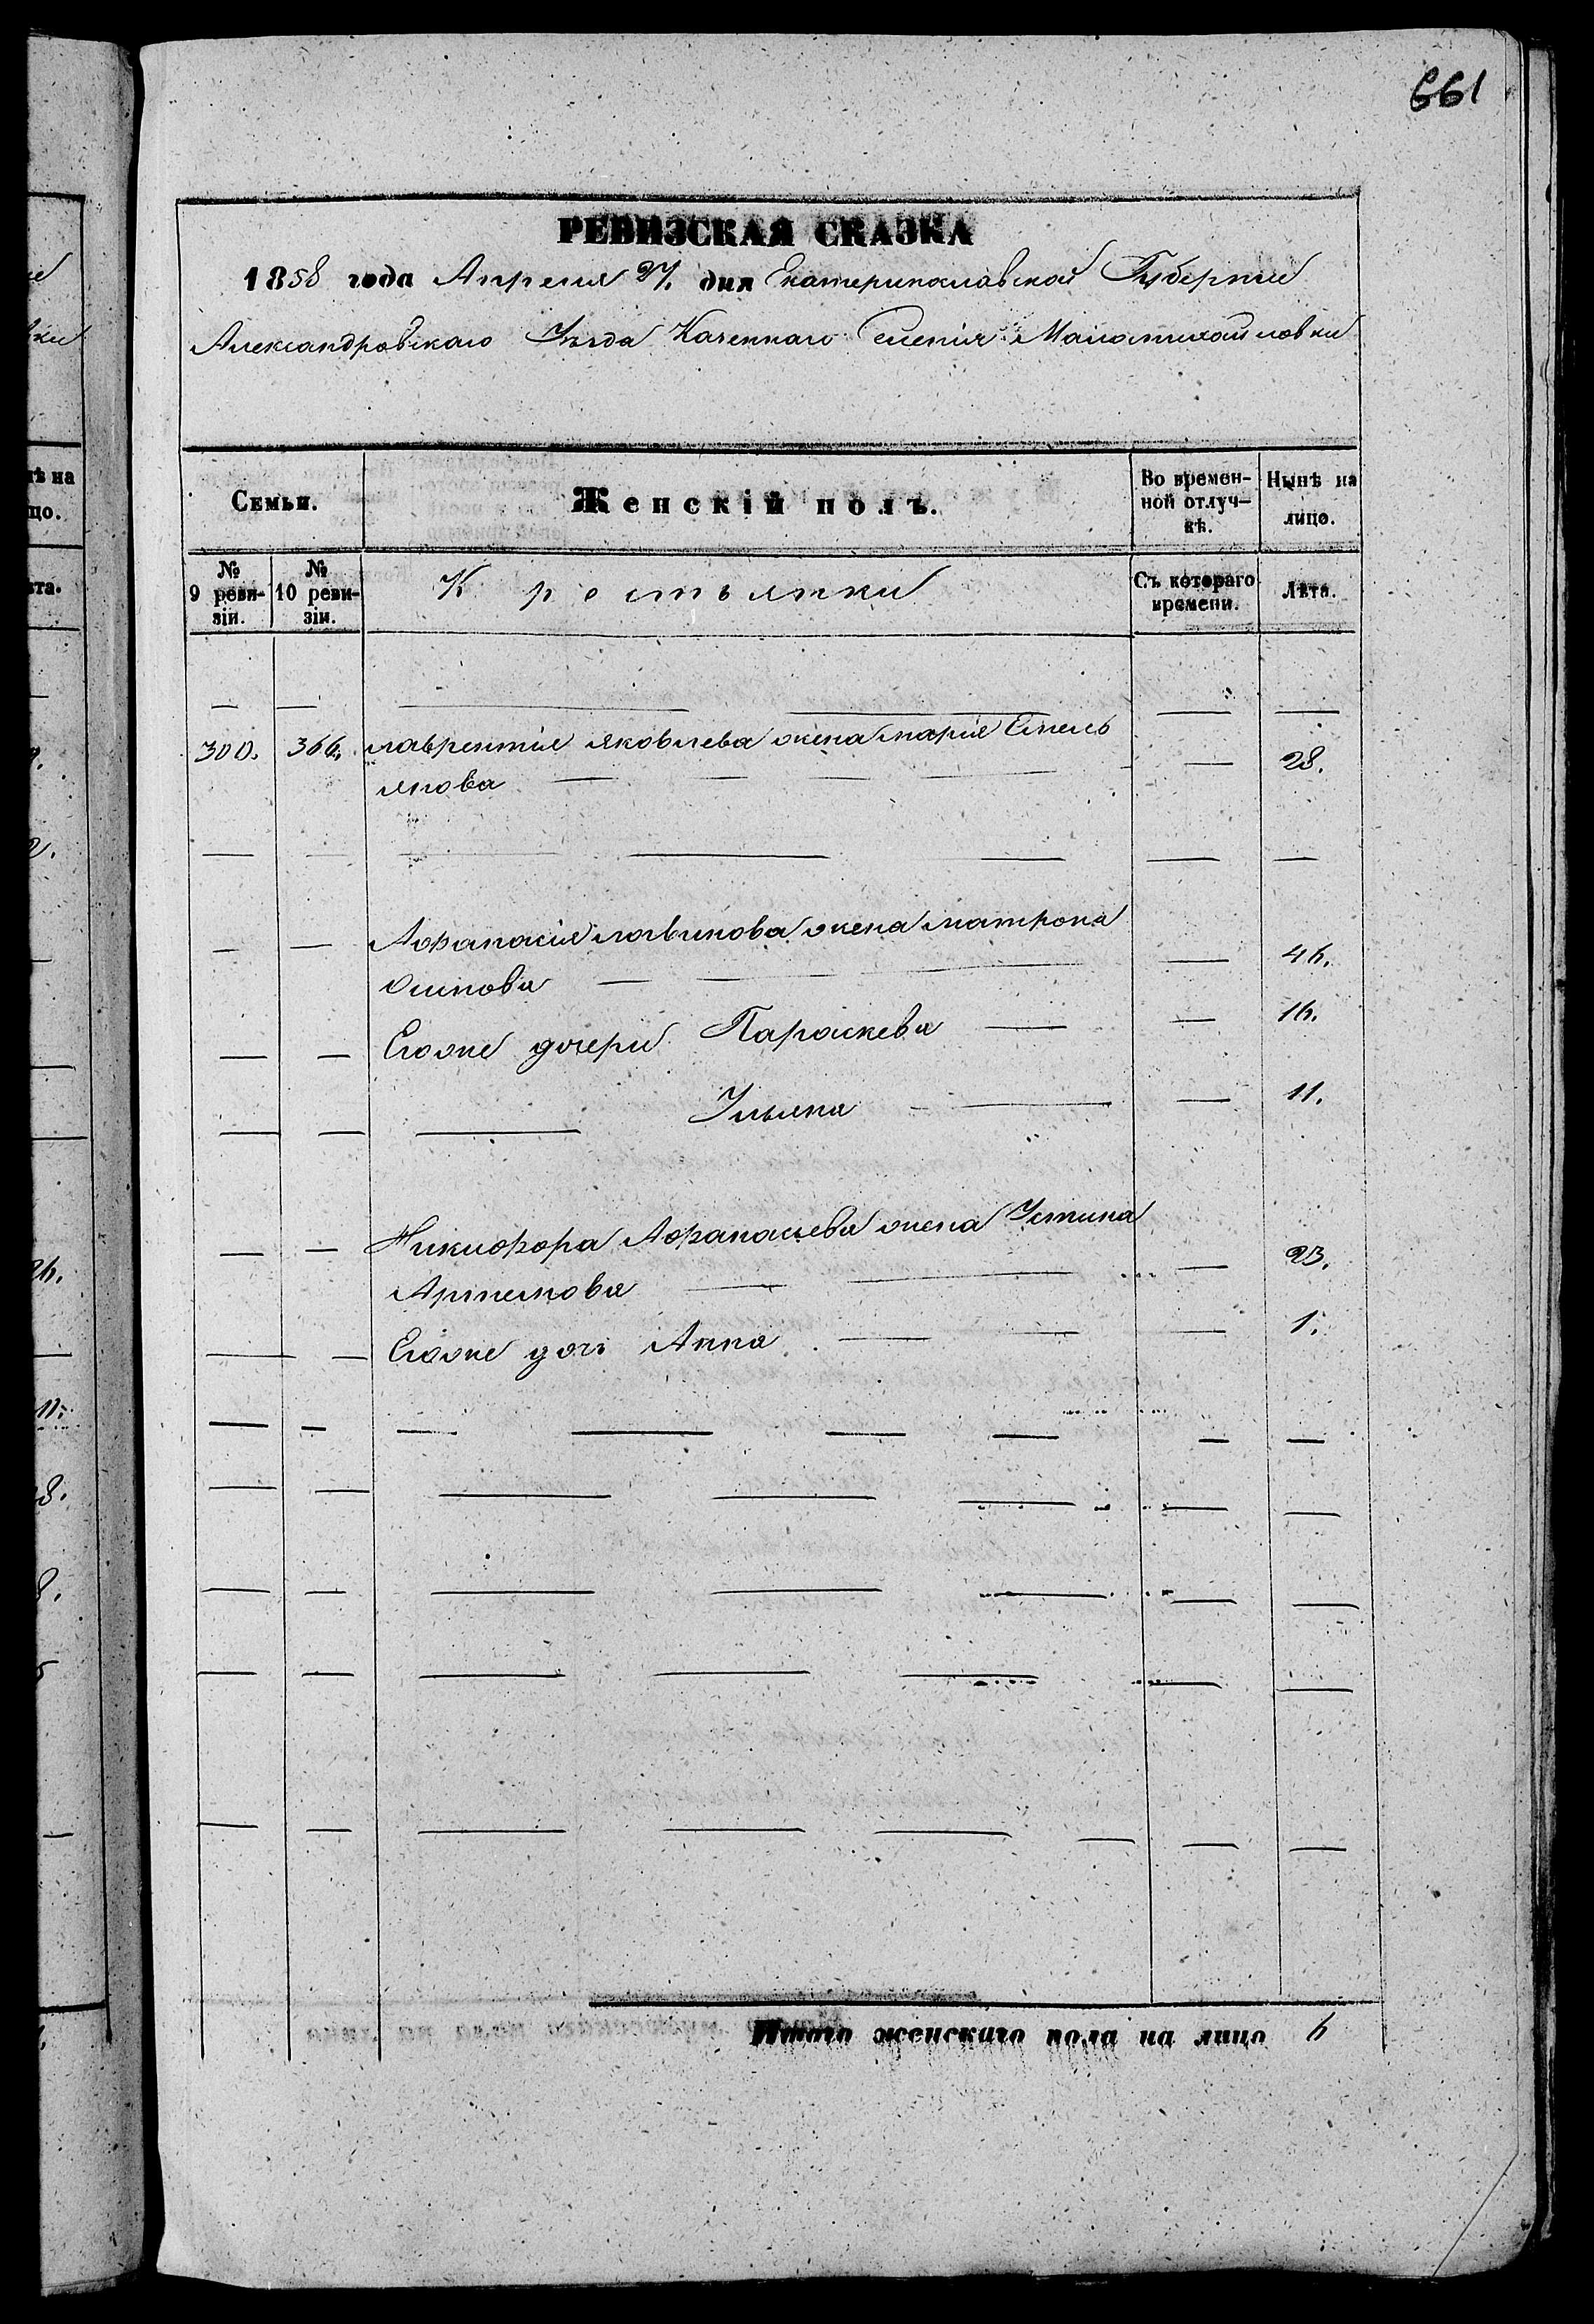 661
РЕВИЗСКАЯ СКАЗКА
1858 года Апреля 27. дня Екатеринославской Губернии
Александровскаго Уѣзда Казеннаго Селенія Маломихайловки
Семьи. Женскій полъ. Во времен-ной отлуч-кѣ. Нынѣ на лицо.
№ 9 реви-зіи. № 10 реви-зіи. Крестьянки Съ котораго времени. Лѣта.
300. 366. Лаврентія Яковлева жена Марія Емель
янова 28.
Афанасія Логвинова жена Матрона
Осипова 46.
Егоже дочери Параскева 16.
Ульяна 11.
Никифора Афанасьева жена Устина
Артемова 23.
Егоже дочь Анна 1.
Итого женскаго пола на лицо 6